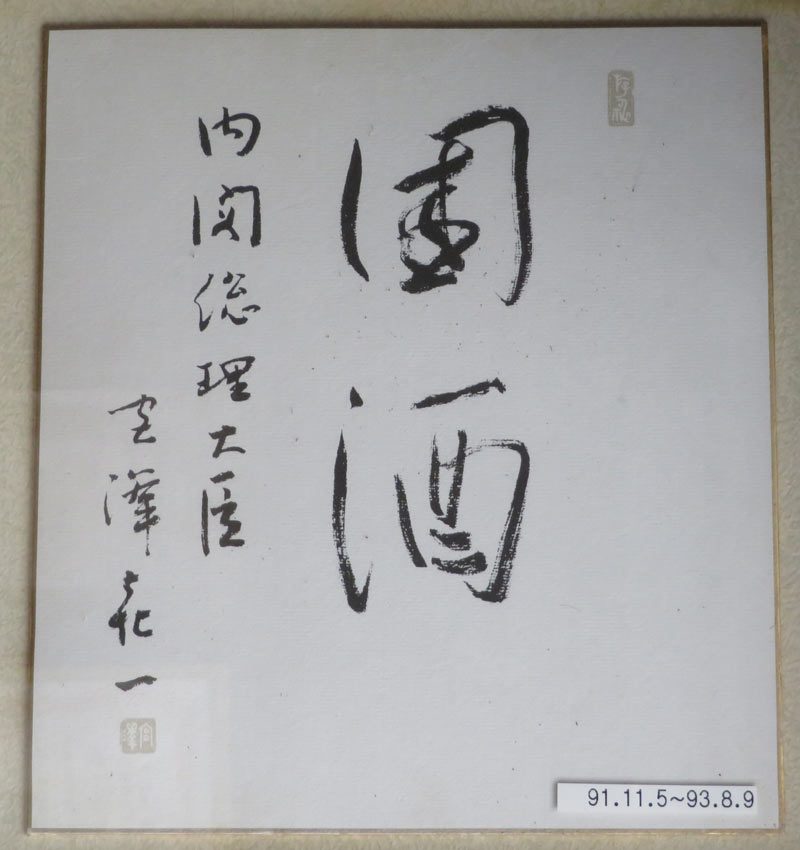 國酒
内閣総理大臣
宮澤喜一
宮澤
91.11.5~93.8.9